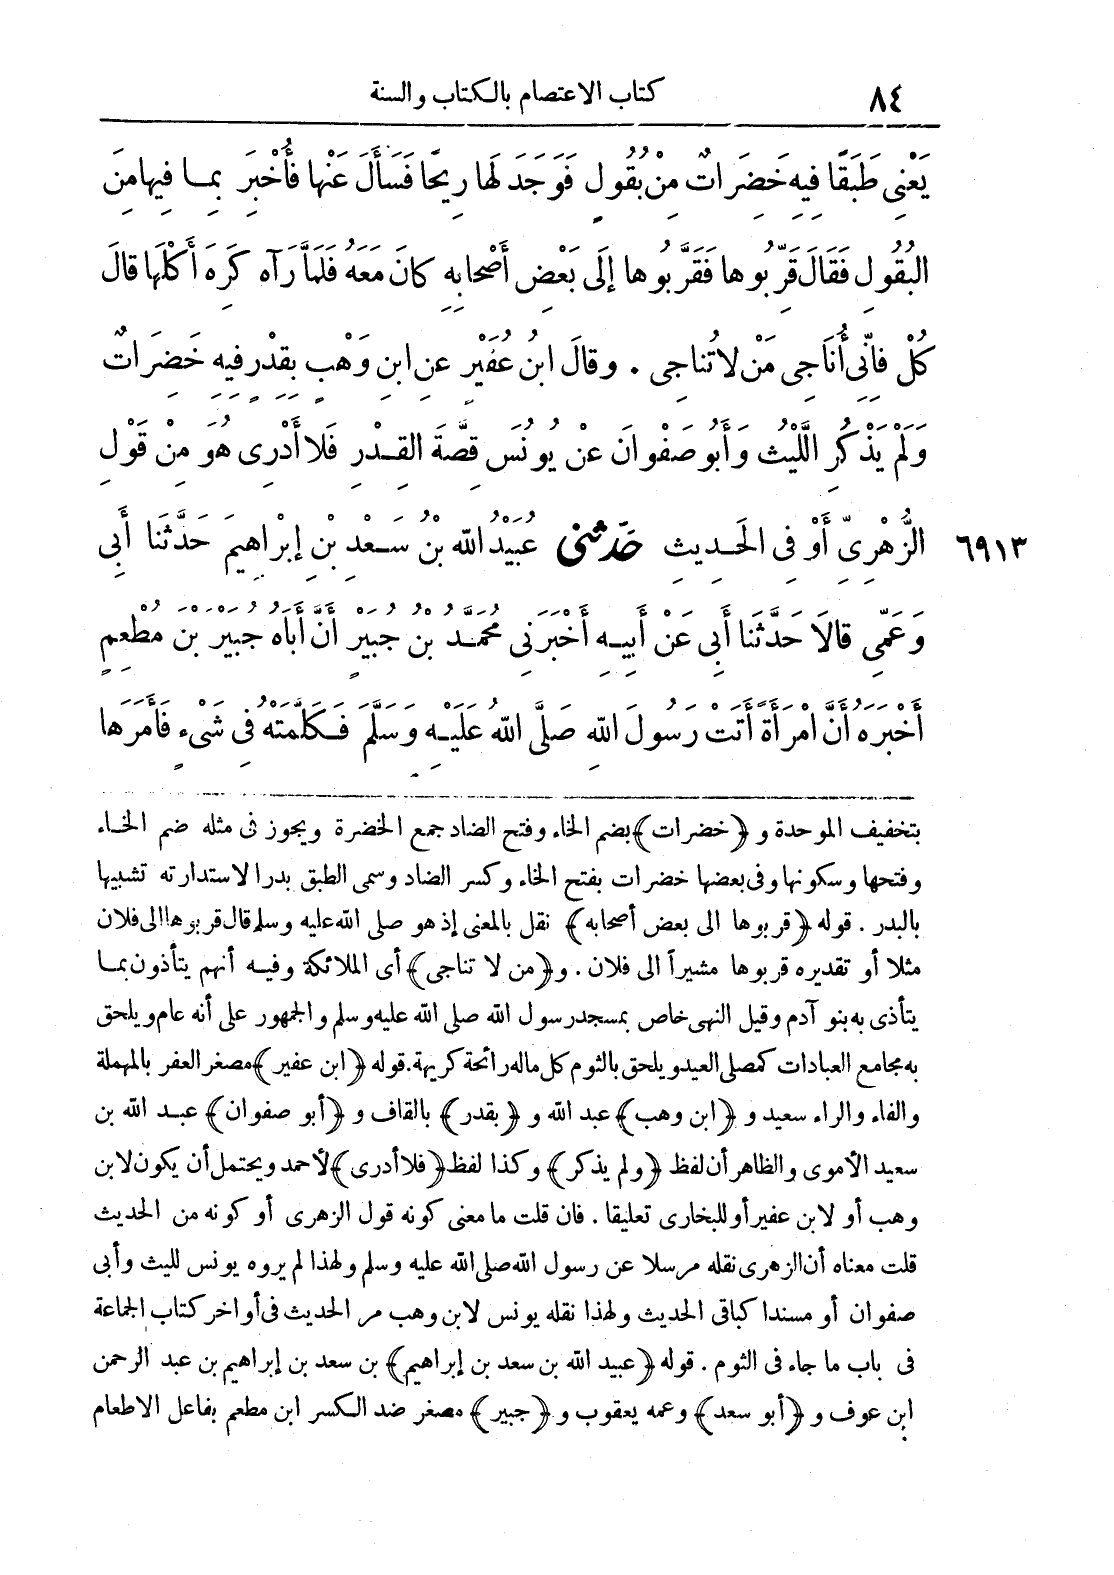 ٨٤
كتاب الاعتصام بالكتاب والسنة
يَعْنِى طَبَقًا فِيهِ خَضِرَاتٌ مِنْ بُقُولٍ فَوَجَدَ لَهَا رِيحًا فَسَأَلَ عَنْهَا فَأُخْبِرَ بِمَا فِيهَا مِنَ
البُقُولِ فَقَالَ قَرِّبُوها فَقَرَّبُوها إِلَى بَعْضِ أَصْحَابِهِ كانَ مَعَهُ فَلَمَّا رَآه كَرِهَ أَكْلَهَا قالَ
كُلْ فَانِّى أُنَاجِى مَنْ لا تُنَاجِى . وقالَ ابنُ عُفَيْرٍ عنِ ابنِ وَهْبٍ بِقِدْرٍ فِيهِ خَضِرَاتٌ
وَلَمْ يَذْكُرِ اللَّيْثُ وَأَبُو صَفْوَانَ عَنْ يُونُسَ قِصَّةَ القِدْرِ فَلا أَدْرِى هُوَ مِنْ قَوْلِ
الزُّهْرِىِّ أَوْ فِى الحَدِيثِ حَدَّثَنِى عُبَيْدُ اللهِ بْنُ سَعْدِ بْنِ إِبْرَاهِيمَ حَدَّثَنَا أَبِى
٦٩١٣
وَعَمِّى قالَا حَدَّثَنَا أَبِى عَنْ أَبِيهِ أَخْبَرَنِى مُحَمَّدُ بْنُ جُبَيْرٍ أَنَّ أَبَاهُ جُبَيْرَ بْنَ مُطْعِمٍ
أَخْبَرَهُ أَنَّ امْرَأَةً أَتَتْ رَسُولَ اللهِ صَلَّى اللهُ عَلَيْهِ وَسَلَّمَ فَكَلَّمَتْهُ فِى شَىْءٍ فَأَمَرَهَا
بتخفيف الموحدة و (خضرات) بضم الخاء وفتح الضاد جمع الخضرة ويجوز فى مثله ضم الخاء
وفتحها وسكونها وفى بعضها خضرات بفتح الخاء وكسر الضاد وسمى الطبق بدرا لاستدارته تشبيها
بالبدر . قوله (قربوها الى بعض أصحابه) نقل بالمعنى إذ هو صلى الله عليه وسلم قال قربوها الى فلان
مثلا أو تقديره قربوها مشيراً الى فلان . و (من لا تناجى) أى الملائكة وفيه أنهم يتأذون بما
يتأذى به بنو آدم وقيل النهى خاص بمسجد رسول الله صلى الله عليه وسلم والجمهور على أنه عام ويلحق
به مجامع العبادات كمصلى العيد ويلحق بالثوم كل ماله رائحة كريهة. قوله (ابن عفير) مصغر العفر بالمهملة
والفاء والراء سعيد و (ابن وهب) عبد الله و (بقدر) بالقاف و (أبو صفوان) عبد الله بن
سعيد الأموى والظاهر أن لفظ (ولم يذكر) وكذا لفظ (فلا أدرى) لأحمد ويحتمل أن يكون لابن
وهب أو لابن عفير أو للبخارى تعليقا . فان قلت ما معنى كونه قول الزهرى أو كونه من الحديث
قلت معناه أن الزهرى نقله مرسلا عن رسول الله صلى الله عليه وسلم ولهذا لم يروه يونس لليث وأبى
صفوان أو مسندا كباقى الحديث ولهذا نقله يونس لابن وهب مر الحديث فى أواخر كتاب الجماعة
فى باب ما جاء فى الثوم . قوله (عبيد الله بن سعد بن إبراهيم) بن سعد بن إبراهيم بن عبد الرحمن
ابن عوف و (أبو سعد) وعمه يعقوب و (جبير) مصغر ضد الكسر ابن مطعم بفاعل الاطعام